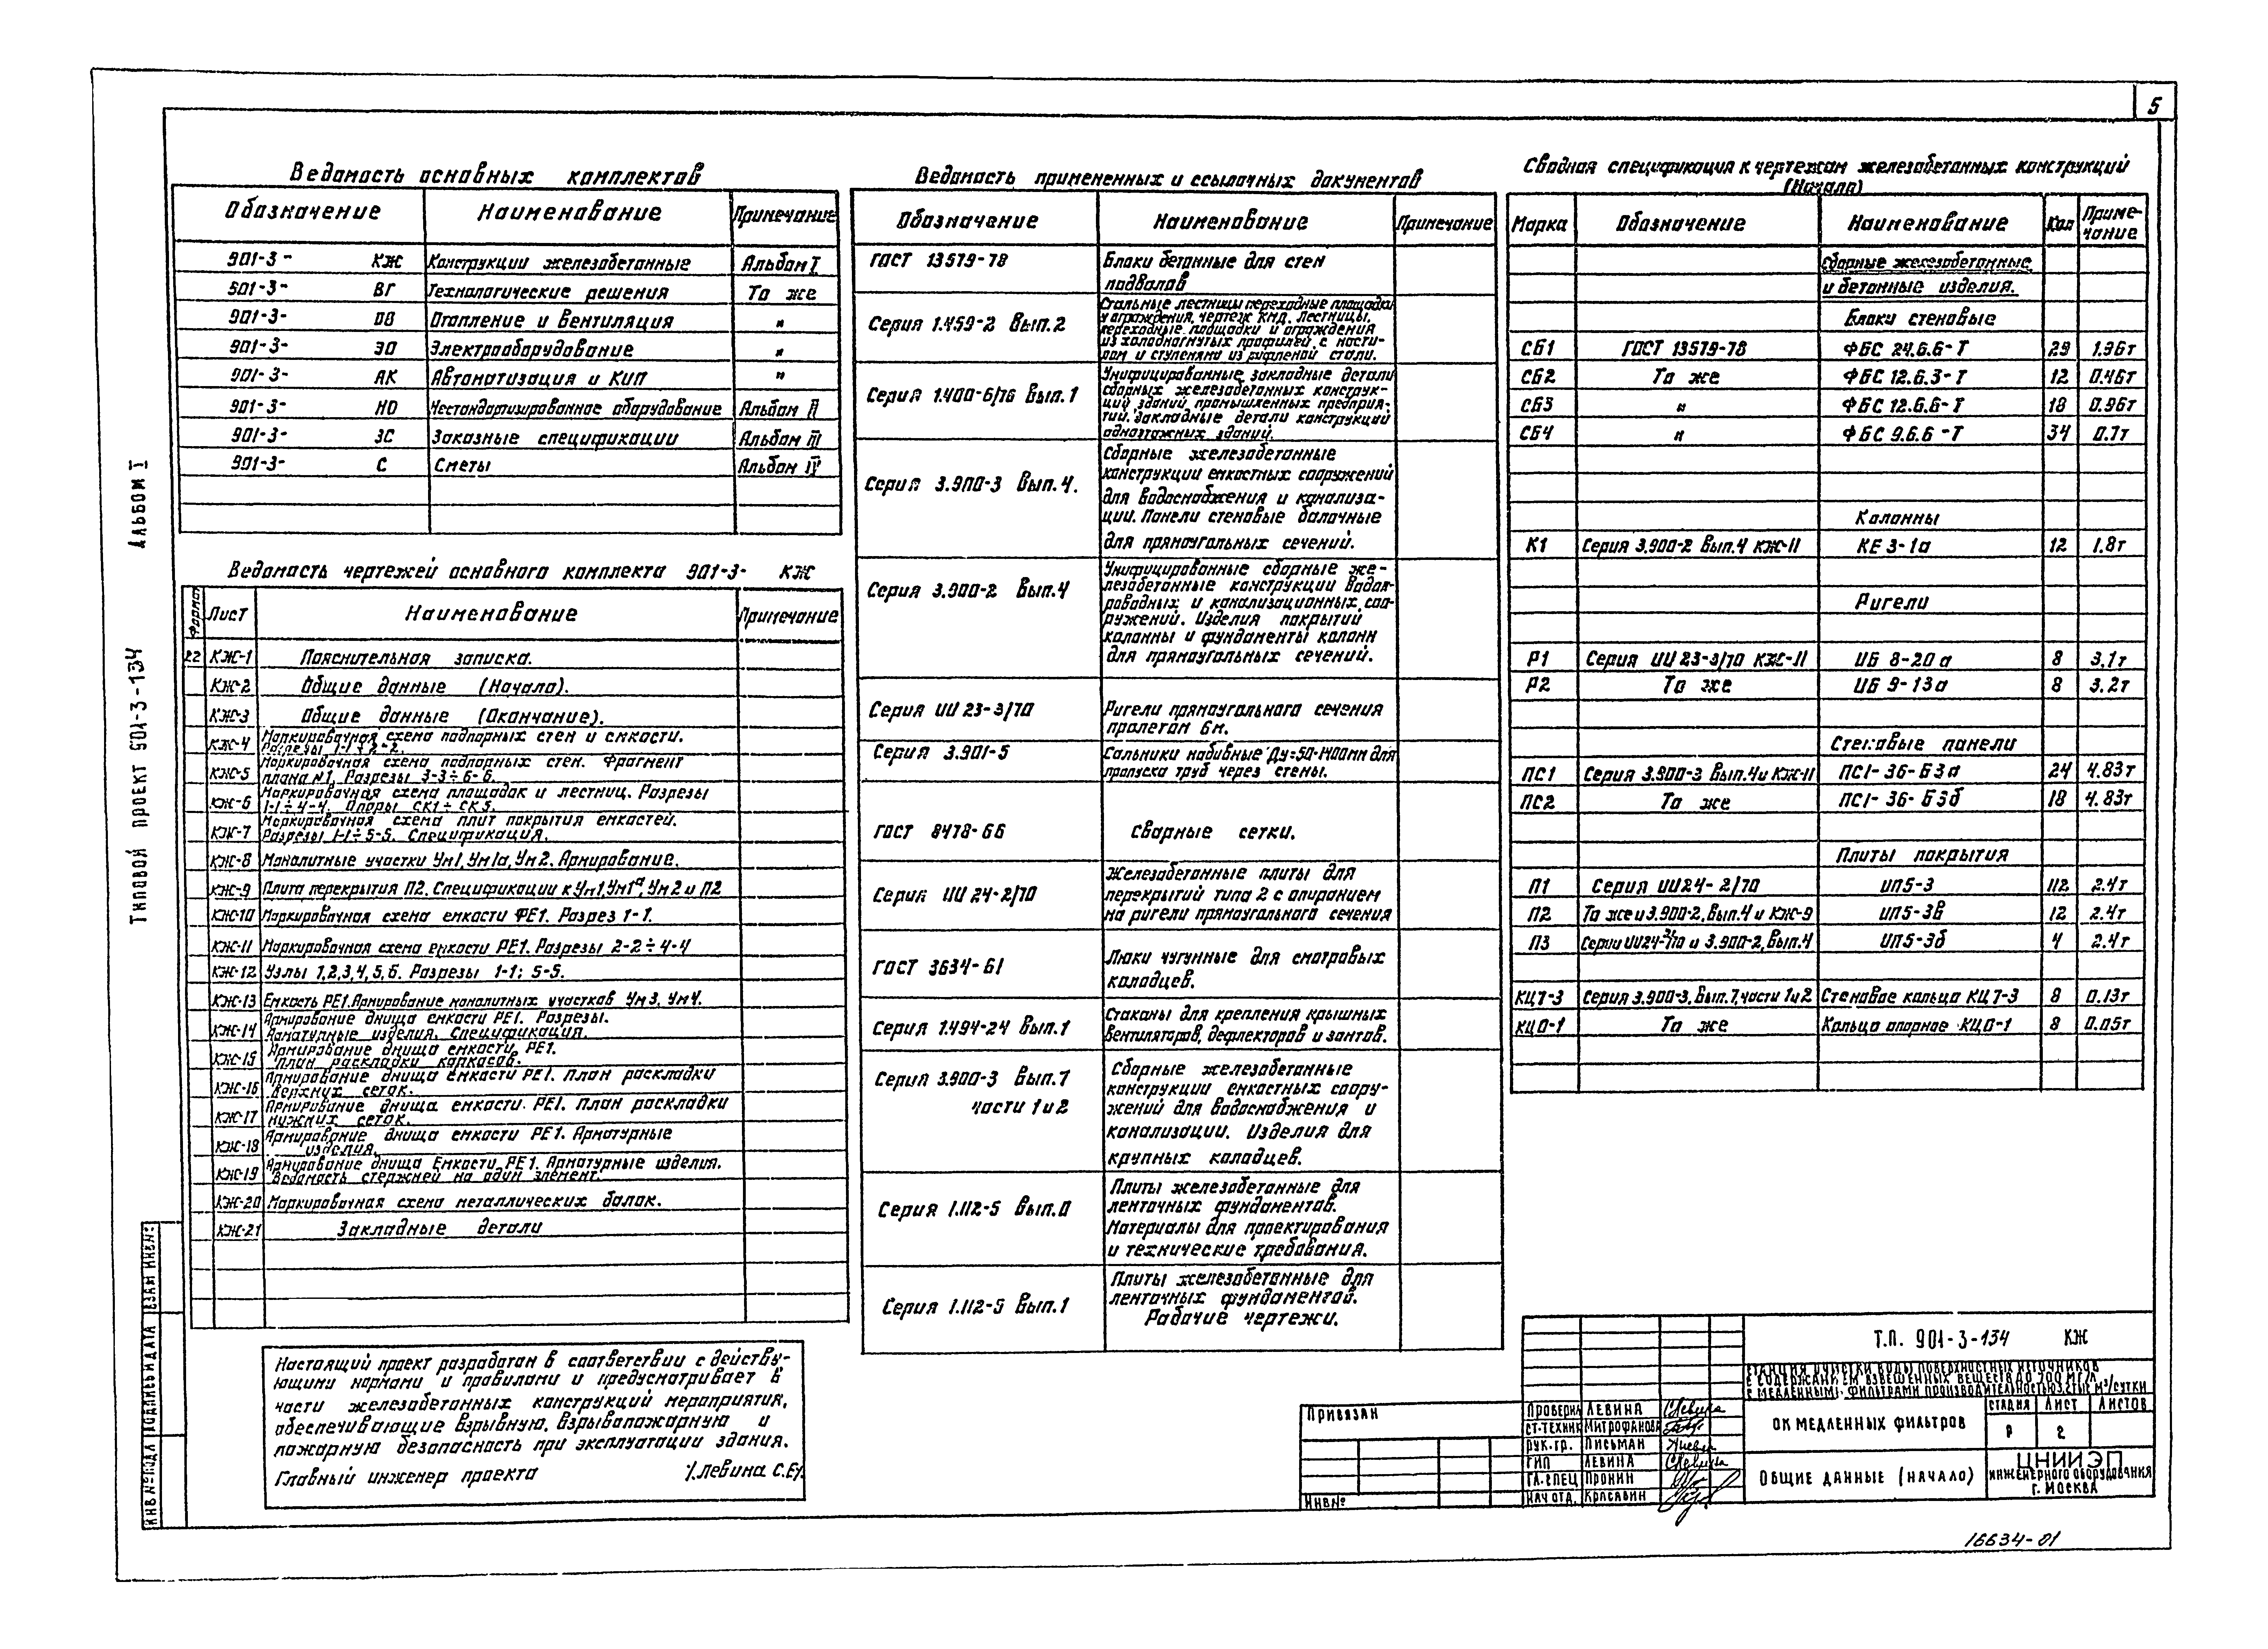 5
Ведомость основных комплектов
Обозначение Наименование Примечание
901-3- КЖ Конструкции железобетонные Альбом I
901-3- ВГ Технологические решения То же
901-3- ОВ Отопление и вентиляция "
901-3- ЭО Электрооборудование "
901-3- АК Автоматизация и КИП "
901-3- НО Нестандартизированное оборудование Альбом II
901-3- ЗС Заказные спецификации Альбом III
901-3- С Сметы Альбом IV
Ведомость чертежей основного комплекта 901-3- КЖ
Формат Лист Наименование Примечание
22 КЖ-1 Пояснительная записка.
КЖ-2 Общие данные (Начало).
КЖ-3 Общие данные (Окончание).
КЖ-4 Маркировочная схема подпорных стен и емкости.
Разрезы 1-1÷2-2.
КЖ-5 Маркировочная схема подпорных стен. Фрагмент
плана №1. Разрезы 3-3÷6-6.
КЖ-6 Маркировочная схема площадок и лестниц. Разрезы
1-1÷4-4. Опоры СК1÷СК5.
КЖ-7 Маркировочная схема плит покрытия емкостей.
Разрезы 1-1÷5-5. Спецификация.
КЖ-8 Монолитные участки Ум1, Ум1а, Ум2. Армирование.
КЖ-9 Плита перекрытия П2. Спецификации к Ум1, Ум1а, Ум2 и П2
КЖ-10 Маркировочная схема емкости ФЕ1. Разрез 1-1.
КЖ-11 Маркировочная схема емкости РЕ1. Разрезы 2-2÷4-4
КЖ-12 Узлы 1,2,3,4,5,6. Разрезы 1-1; 5-5.
КЖ-13 Емкость РЕ1. Армирование монолитных участков Ум3, Ум4.
КЖ-14 Армирование днища емкости РЕ1. Разрезы.
Арматурные изделия. Спецификация.
КЖ-15 Армирование днища емкости РЕ1.
План раскладки каркасов.
КЖ-16 Армирование днища емкости РЕ1. План раскладки
верхних сеток.
КЖ-17 Армирование днища емкости РЕ1. План раскладки
нижних сеток.
КЖ-18 Армирование днища емкости РЕ1. Арматурные
изделия.
КЖ-19 Армирование днища Емкости РЕ1. Арматурные изделия.
Ведомость стержней на один элемент.
КЖ-20 Маркировочная схема металлических балок.
КЖ-21 Закладные детали
Настоящий проект разработан в соответствии с действу-
ющими нормами и правилами и предусматривает в
части железобетонных конструкций мероприятия,
обеспечивающие взрывную, взрывопожарную и
пожарную безопасность при эксплуатации здания.
Главный инженер проекта /Левина С.Е/.
Ведомость примененных и ссылочных документов
Обозначение Наименование Примечание
ГОСТ 13579-78 Блоки бетонные для стен
подвалов
Серия 1.459-2 Вып.2 Стальные лестницы переходные площадки
и ограждения, чертеж КМД. Лестницы,
переходные площадки и ограждения
из холодногнутых профилей с насти-
лом и ступенями из рифленой стали.
Серия 1.400-6/76 Вып.1 Унифицированные закладные детали
сборных железобетонных конструк-
ций зданий промышленных предприя-
тий. Закладные детали конструкций
одноэтажных зданий.
Серия 3.900-3 Вып.4. Сборные железобетонные
конструкции емкостных сооружений
для водоснабжения и канализа-
ции. Панели стеновые балочные
для прямоугольных сечений.
Серия 3.900-2 Вып.4 Унифицированные сборные же-
лезобетонные конструкции водо-
роводных и канализационных соо-
ружений. Изделия покрытий
колонны и фундаменты колонн
для прямоугольных сечений.
Серия ИИ 23-3/70 Ригели прямоугольного сечения
пролетом 6м.
Серия 3.901-5 Сальники набивные Ду=50-1400мм для
пропуска труб через стены.
ГОСТ 8478-66 Сварные сетки.
Серия ИИ 24-2/70 Железобетонные плиты для
перекрытий типа 2 с опиранием
на ригели прямоугольного сечения
ГОСТ 3634-61 Люки чугунные для смотровых
колодцев.
Серия 1.494-24 Вып.1 Стаканы для крепления крышных
вентиляторов, дефлекторов и зонтов.
Серия 3.900-3 Вып.7 части 1 и 2 Сборные железобетонные
конструкции емкостных соору-
жений для водоснабжения и
канализации. Изделия для
круглых колодцев.
Серия 1.112-5 Вып.0 Плиты железобетонные для
ленточных фундаментов.
Материалы для проектирования
и технические требования.
Серия 1.112-5 Вып.1 Плиты железобетонные для
ленточных фундаментов.
Рабочие чертежи.
Сводная спецификация к чертежам железобетонных конструкций
(Начало)
Марка Обозначение Наименование Кол Приме-
чание
Сборные железобетонные
и бетонные изделия.
Блоки стеновые
СБ1 ГОСТ 13579-78 ФБС 24.6.6-Т 29 1.96т
СБ2 То же ФБС 12.6.3-Т 12 0.46т
СБ3 " ФБС 12.6.6-Т 18 0.96т
СБ4 " ФБС 9.6.6-Т 34 0.7т
Колонны
К1 Серия 3.900-2 Вып.4 КЖ-11 КЕ 3-1а 12 1.8т
Ригели
Р1 Серия ИИ 23-3/70 КЖ-11 ИБ 8-20а 8 3,1т
Р2 То же ИБ 9-13а 8 3.2т
Стеновые панели
ПС1 Серия 3.900-3 Вып.4 и КЖ-11 ПС1-36-Б3а 24 4.83т
ПС2 То же ПС1-36-Б3б 18 4.83т
Плиты покрытия
П1 Серия ИИ24-2/70 ИП5-3 112 2.4т
П2 То же и 3.900-2, Вып.4 и КЖ-9 ИП5-3в 12 2.4т
П3 Серии ИИ24-2/70 и 3.900-2, Вып.4 ИП5-3б 4 2.4т
КЦ7-3 Серия 3.900-3, Вып.7, части 1 и 2 Стеновое кольцо КЦ7-3 8 0.13т
КЦО-1 То же Кольцо опорное КЦО-1 8 0.05т
АЛЬБОМ I
ТИПОВОЙ ПРОЕКТ 901-3-134
ВЗАМ ИНВ.№
ПОДПИСЬ И ДАТА
ИНВ.№ ПОДЛ
ПРИВЯЗАН
ИНВ№
ПРОВЕРИЛ ЛЕВИНА
СТ.ТЕХНИК МИТРОФАНОВА
РУК.ГР. ПИСЬМАН
ГИП ЛЕВИНА
ГЛ.СПЕЦ ПРОНИН
НАЧ ОТД. КРАСАВИН
Т.П. 901-3-134 КЖ
СТАНЦИЯ ОЧИСТКИ ВОДЫ ПОВЕРХНОСТНЫХ ИСТОЧНИКОВ
С СОДЕРЖАНИЕМ ВЗВЕШЕННЫХ ВЕЩЕСТВ ДО 700 МГ/Л
С МЕДЛЕННЫМИ ФИЛЬТРАМИ ПРОИЗВОДИТЕЛЬНОСТЬЮ М³/СУТКИ
ОК МЕДЛЕННЫХ ФИЛЬТРОВ
СТАДИЯ ЛИСТ ЛИСТОВ
Р 2
ОБЩИЕ ДАННЫЕ (НАЧАЛО)
ЦНИИЭП
ИНЖЕНЕРНОГО ОБОРУДОВАНИЯ
Г. МОСКВА
16634-01